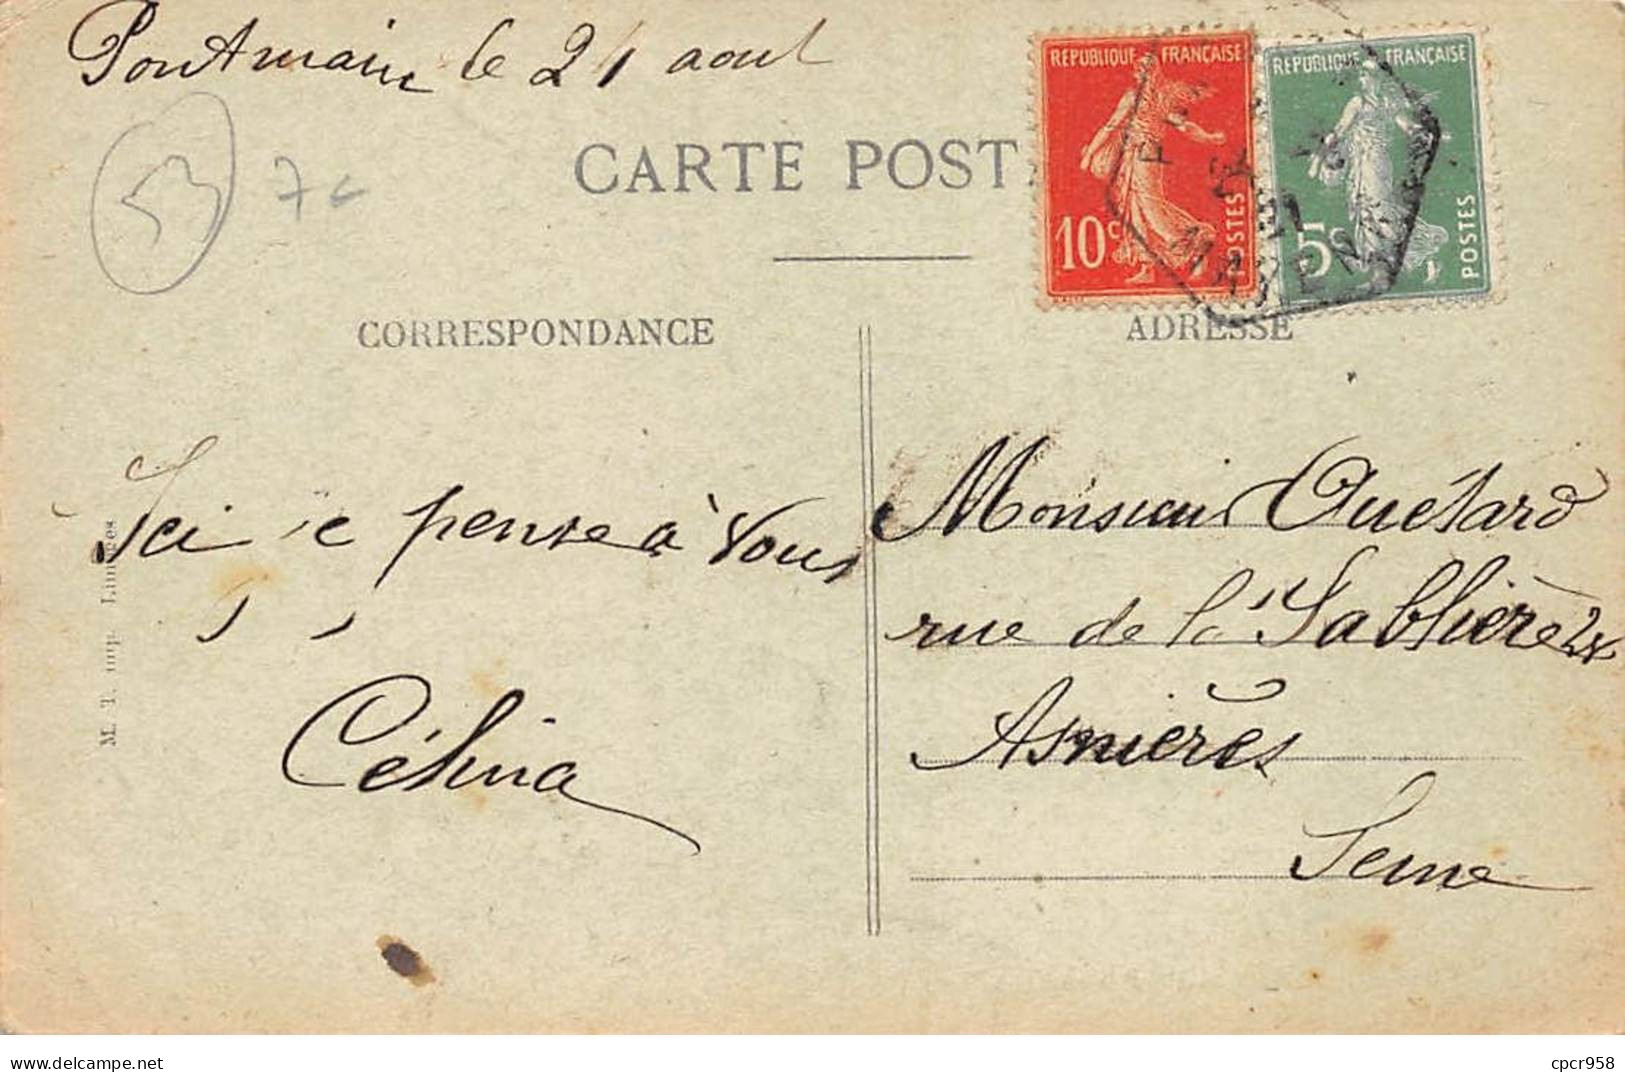 Pontmain le 21 aout
53
7c
CARTE POST
RÉPUBLIQUE FRANÇAISE
10c
POSTES
RÉPUBLIQUE FRANÇAISE
5c
POSTES
21
MAYENNE
CORRESPONDANCE
ADRESSE
Ici je pense à vous
Célina
M. T. imp. Limoges
Monsieur Quétard
rue de la Sablière 24
Asnières
Seine
www.delcampe.net
cpcr958